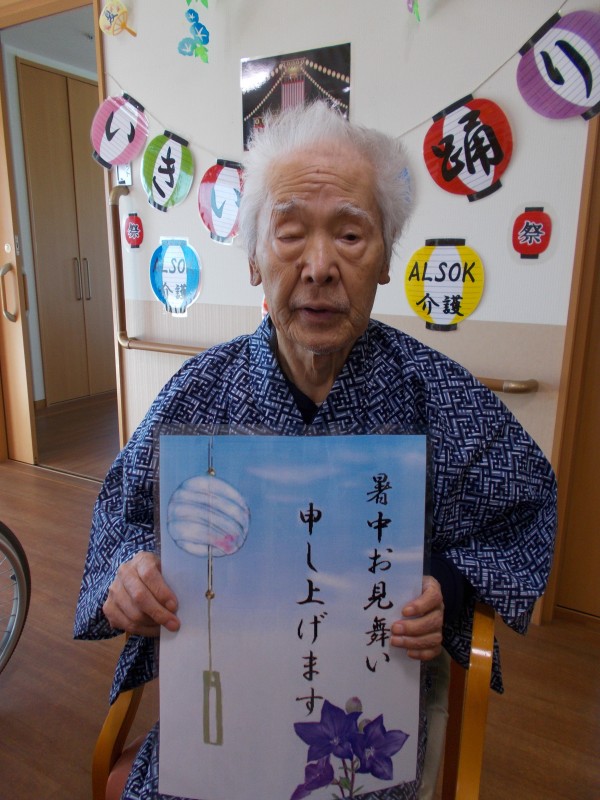 いきい
踊り
祭
祭
ALSO
介護
ALSOK
介護
暑中お見舞い
申し上げます